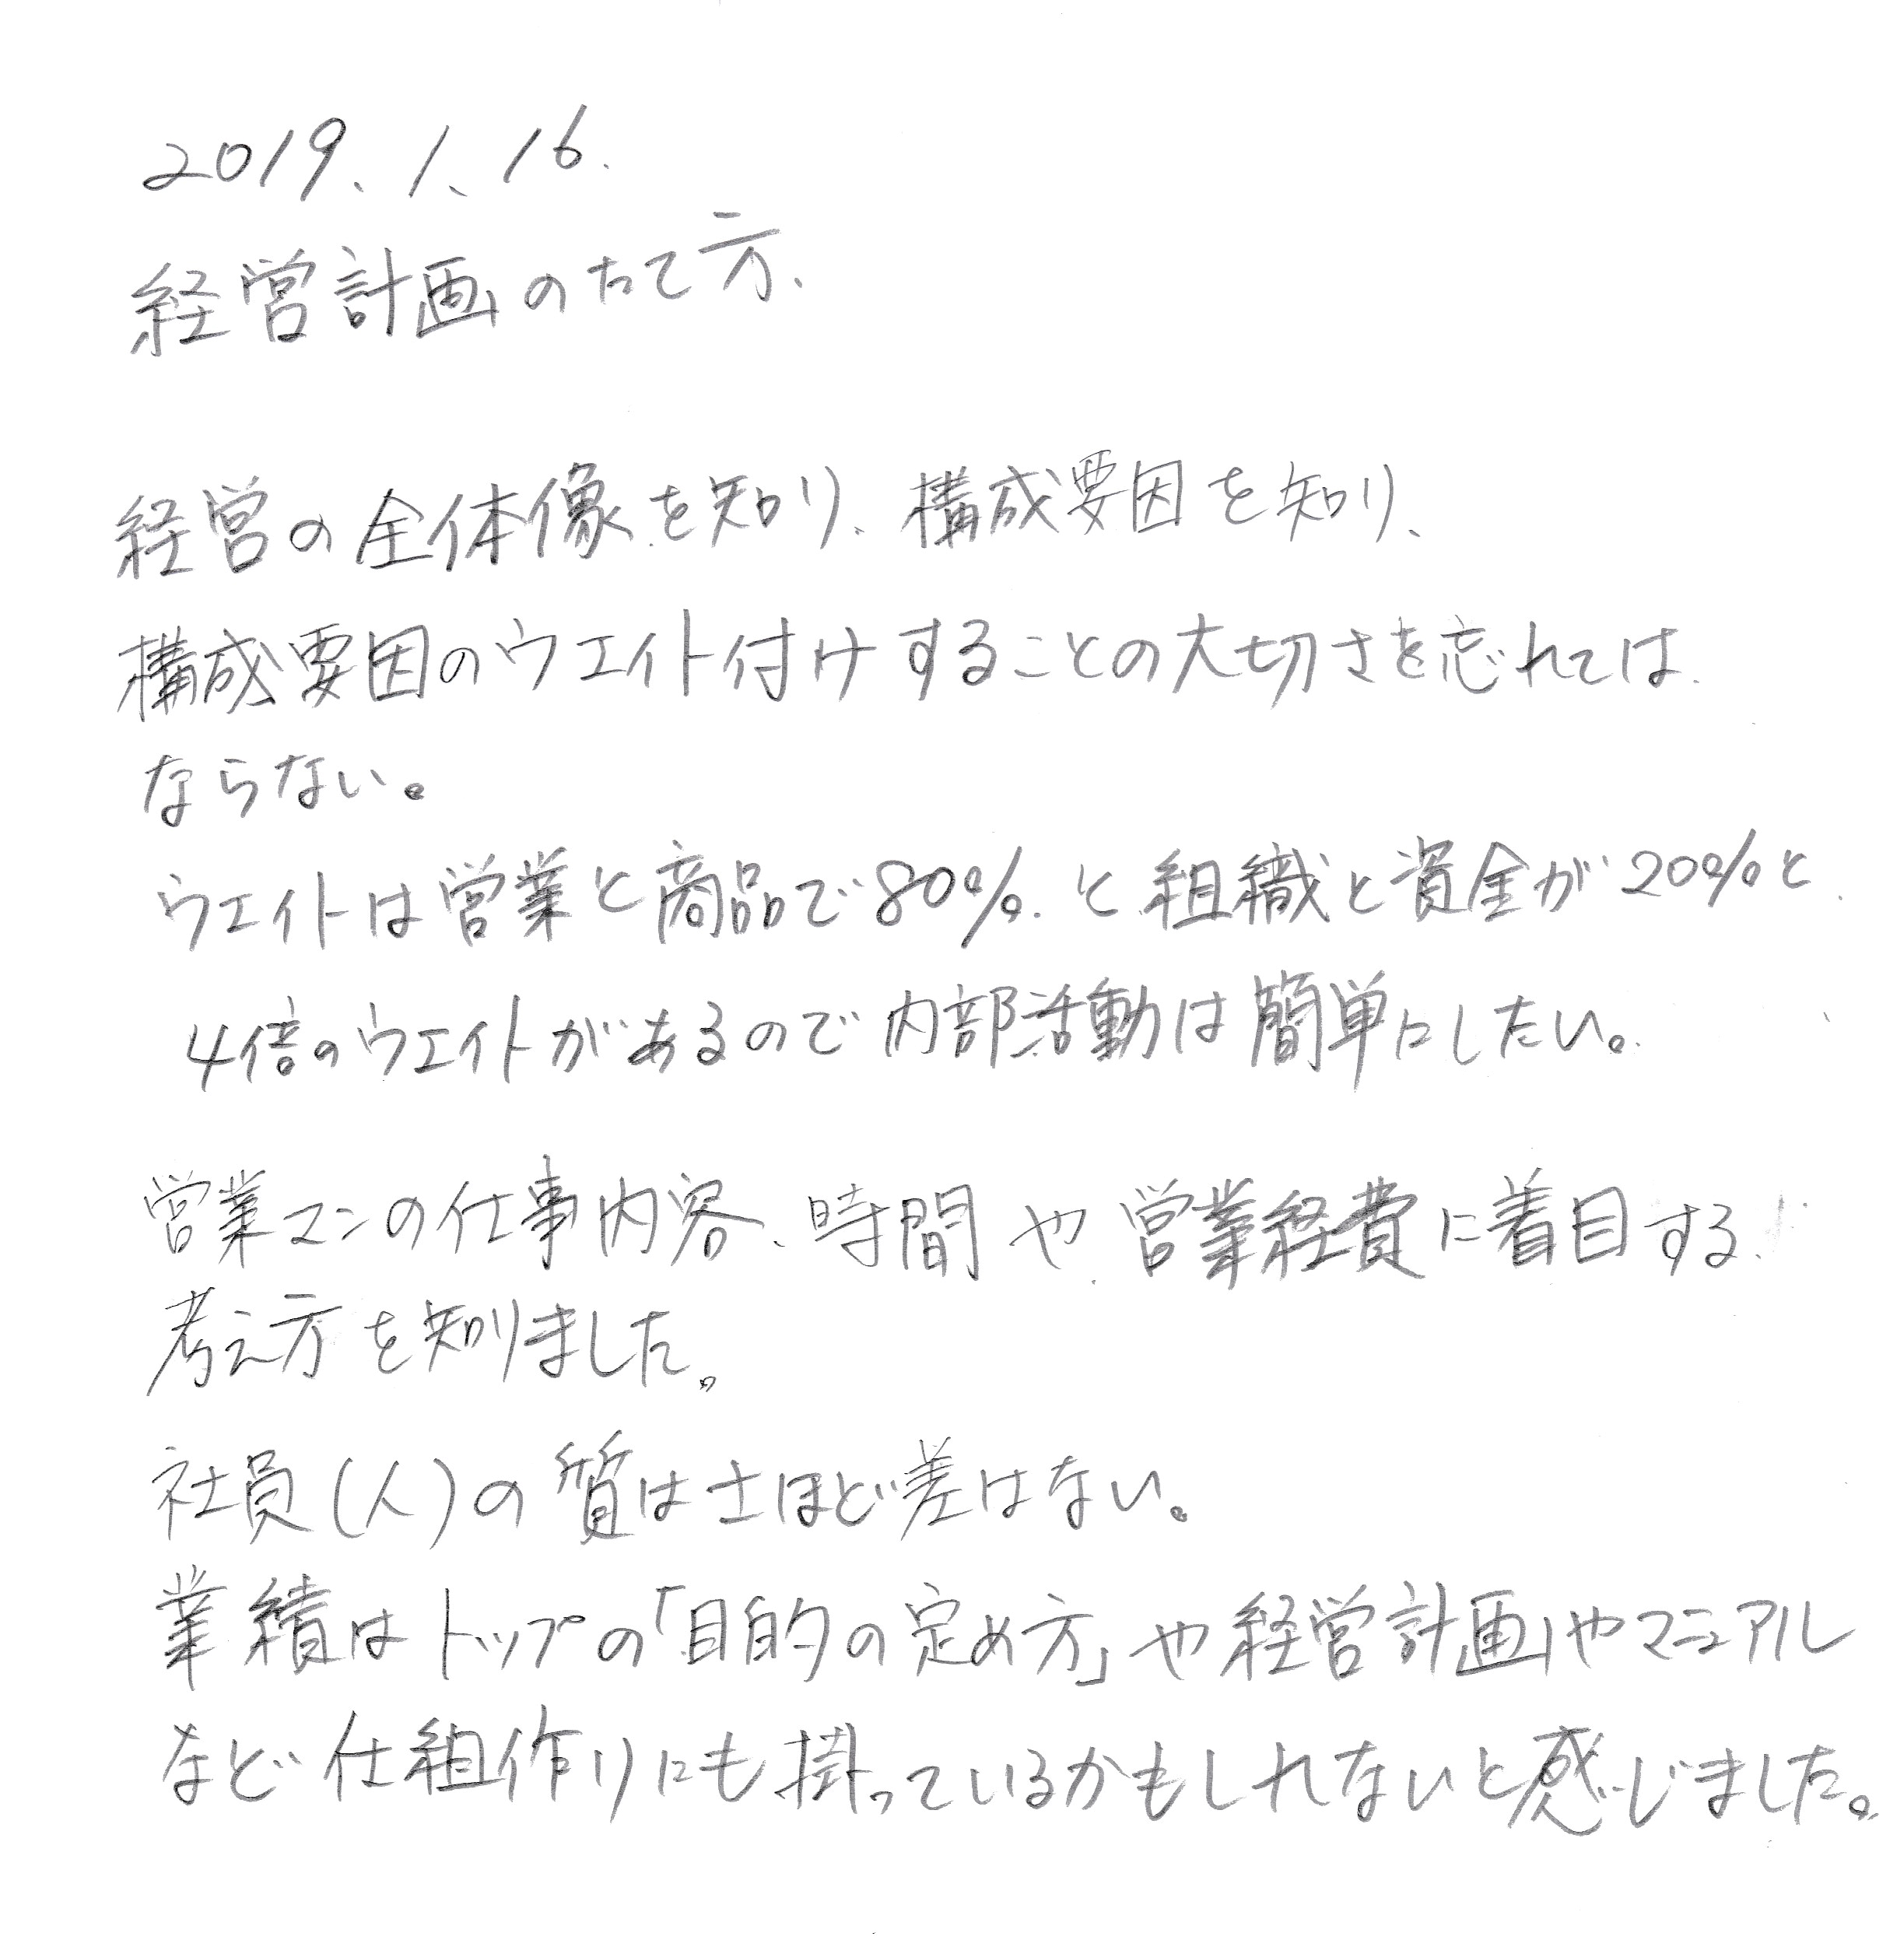 2019、1、16.
経営計画のたて方、
経営の全体像を知り、構成要因を知り、
構成要因のウエイト付けすることの大切さを忘れては
ならない。
ウエイトは営業と商品で80%と組織と資金が20%と
4倍のウエイトがあるので内部活動は簡単にしたい。
営業マンの仕事内容、時間や営業経費に着目する
考え方を知りました。
社員(人)の質はさほど差はない。
業績はトップの「目的の定め方」や経営計画やマニュアル
など仕組作りにも掛っているかもしれないと感じました。